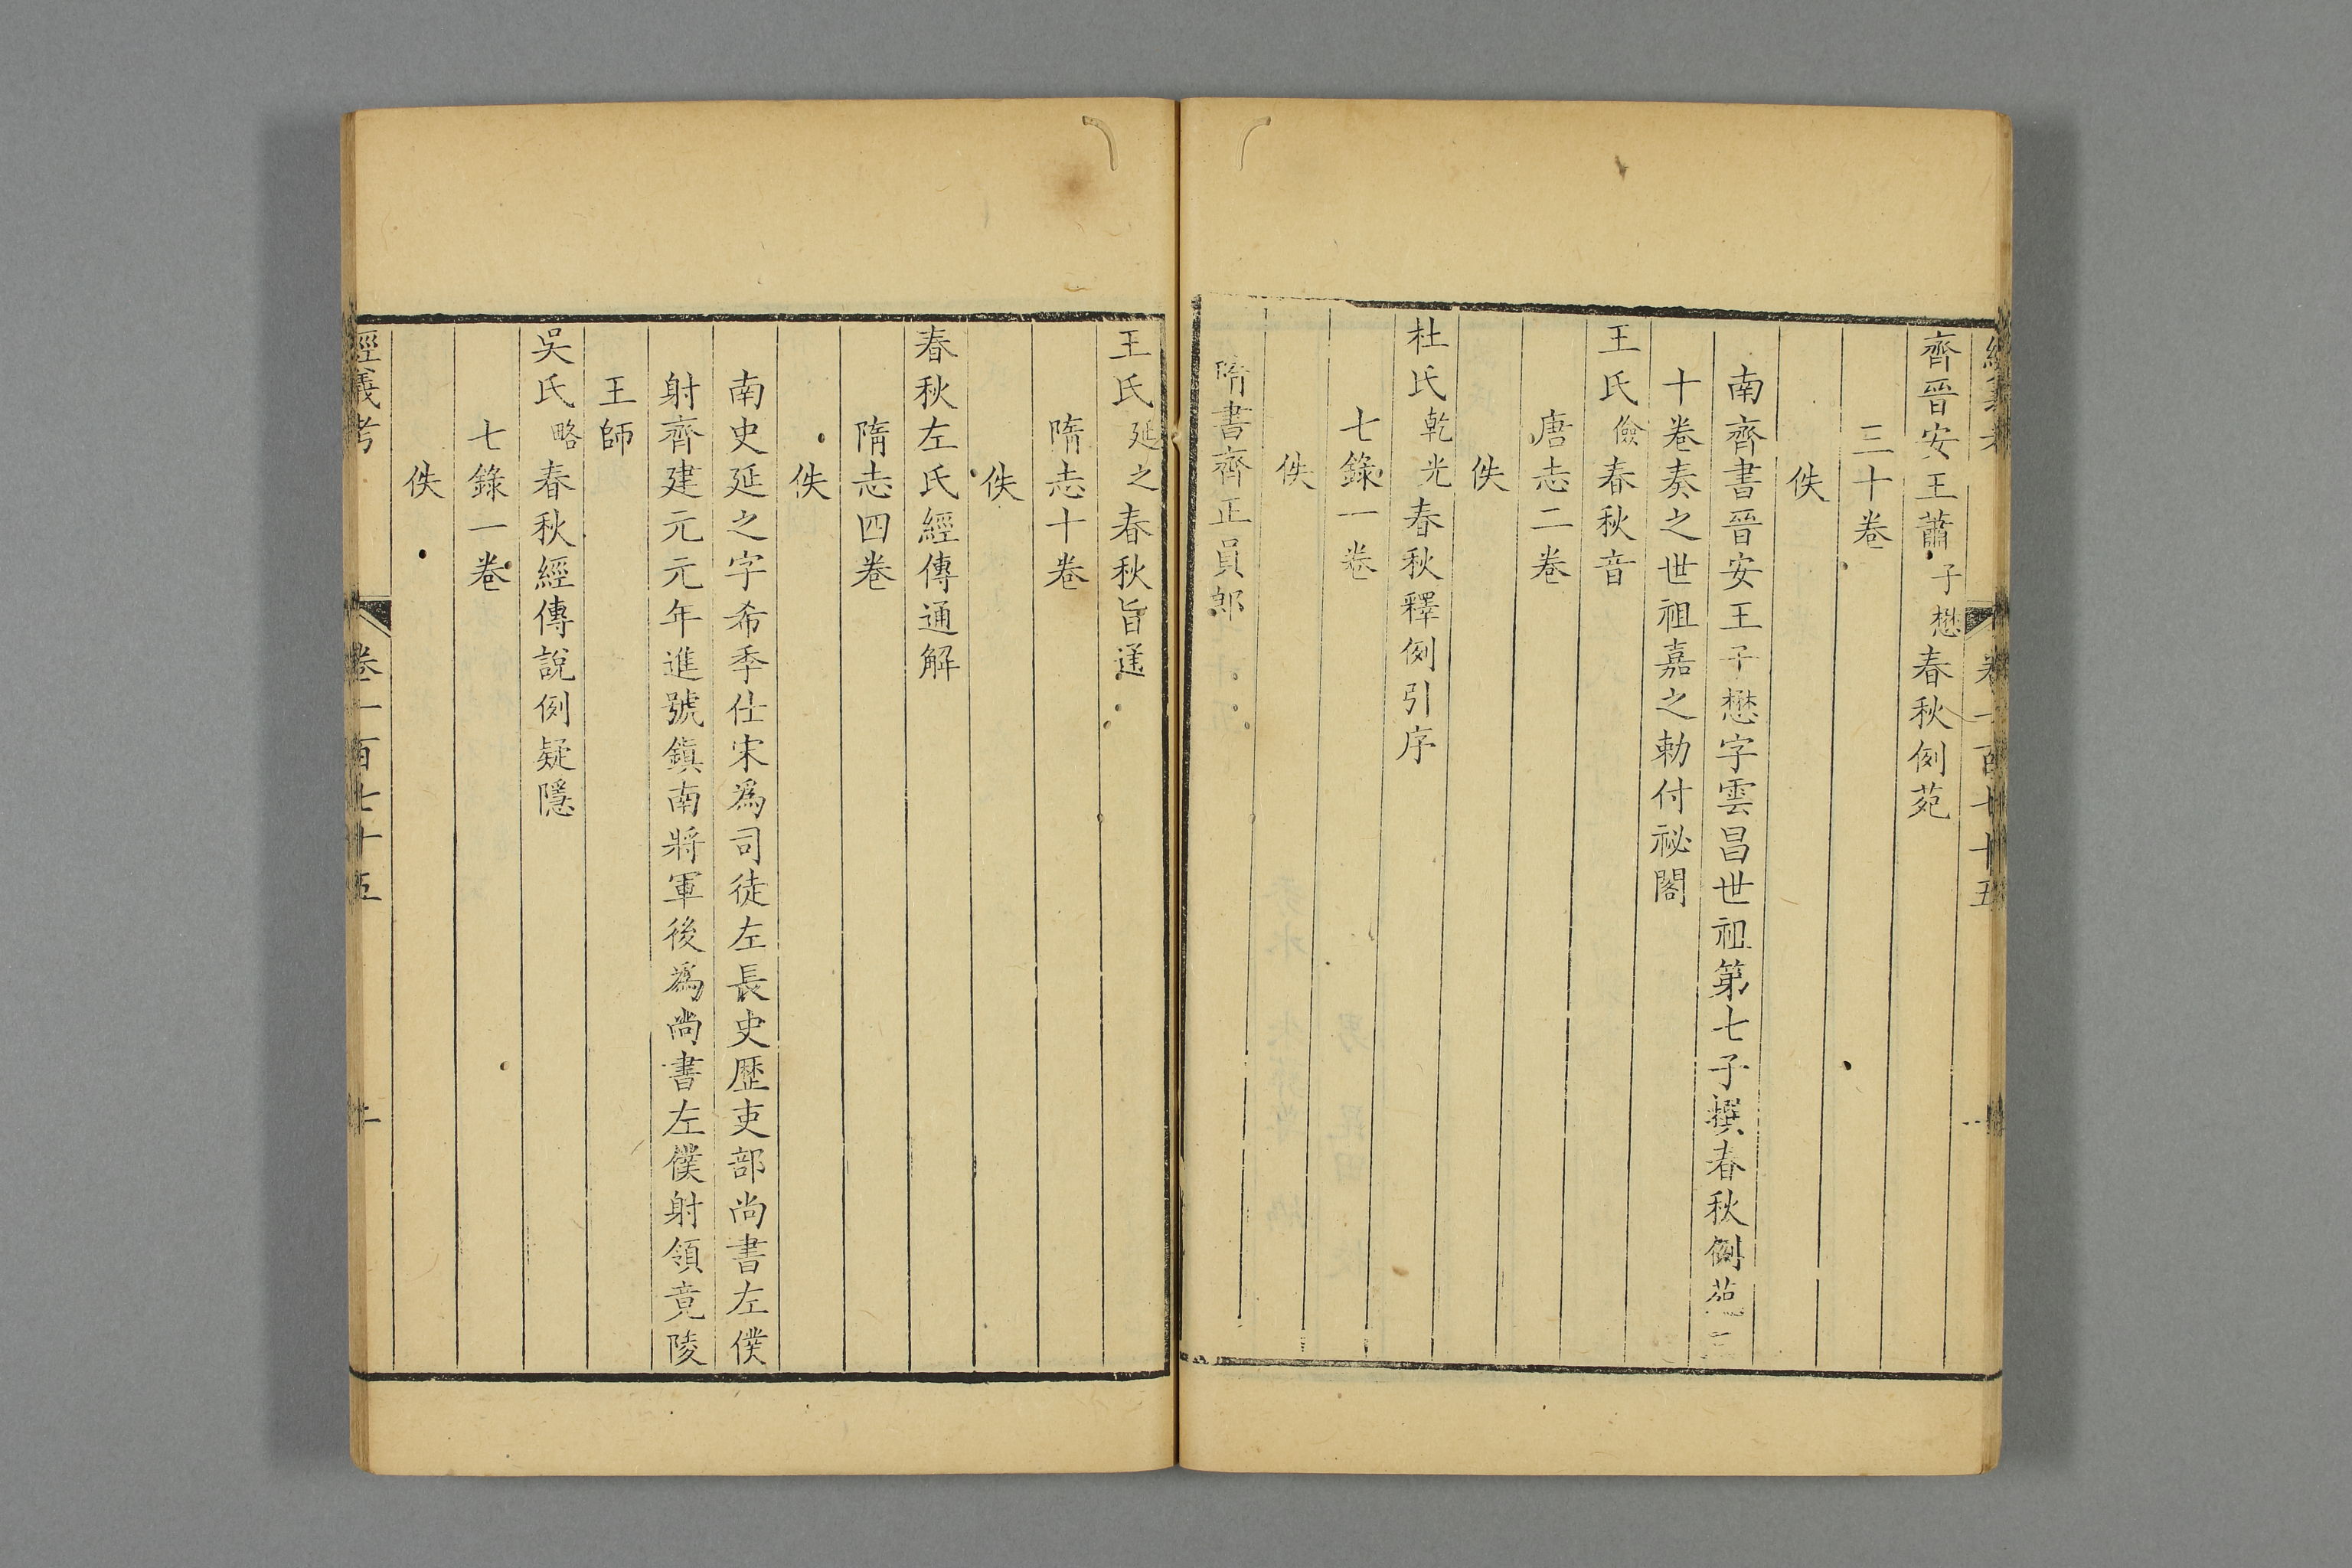 齊晉安王蕭子懋春秋例苑
三十卷
佚
南齊書晉安王子懋字雲昌世祖第七子撰春秋例苑三
十卷奏之世祖嘉之勅付祕閣
王氏儉春秋音
唐志二卷
佚
杜氏乾光春秋釋例引序
七錄一卷
佚
隋書齊正員郎
王氏延之春秋旨通
隋志十卷
佚
春秋左氏經傳通解
隋志四卷
佚
南史延之字希季仕宋為司徒左長史歷吏部尚書左僕
射齊建元元年進號鎮南將軍後為尚書左僕射領竟陵
王師
吳氏略春秋經傳說例疑隱
七錄一卷
佚
經義考 卷一百七十五